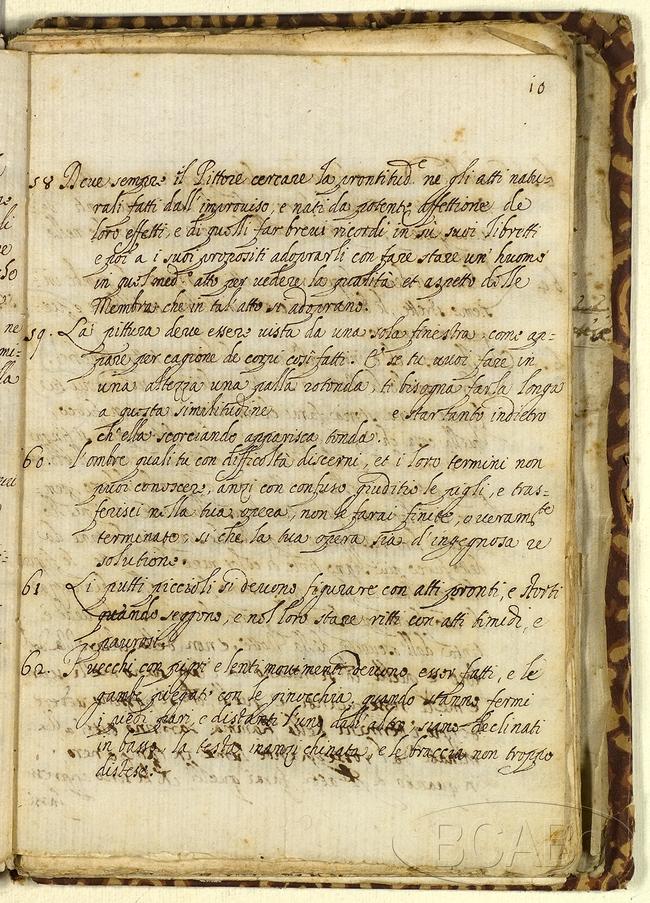 10
58 Deve sempre il Pittore cercare la prontitud.e ne gli atti natu-
rali fatti dall'improuiso, e nati da potente affettione de
loro effetti, e di quelli far breui ricordi in su suoi libretti
e poi a i suoi propositi adoprarli con fare stare un' huomo
in quel med.o atto per vedere la qualità et aspetto delle
Membra che in tal atto si adoprano.
59. La pittura deve essere vista da una sola finestra, come ap-
pare per cagione de corpi così fatti. E se tu vuoi fare in
una altezza una palla rotonda, ti bisogna farla longa
a questa similitudine e star tanto indietro
ch'ella scorciando apparisca tonda.
60. L'ombre quali tu con difficoltà discerni, et i loro termini non
puoi conoscere, anzi con confuso giuditio le pigli, e tras-
ferisci nella tua opera, non le farai finite, o veram.te
terminate, si che la tua opera sia d'ingegnosa re
solutione.
61 Li putti piccioli si devono figurare con atti pronti, e storti
quando seggono, e nel loro stare ritti con atti timidi, e
paurosi.
62. I vecchi con pigri e lenti mouimenti devono esser fatti, e le
gambe piegate con le ginocchia, quando stanno fermi
i piedi pari, e distanti l'uno dall'altro; siano declinati
in basso, la testa inanzi chinata, e le braccia non troppo
distese.
BCAB